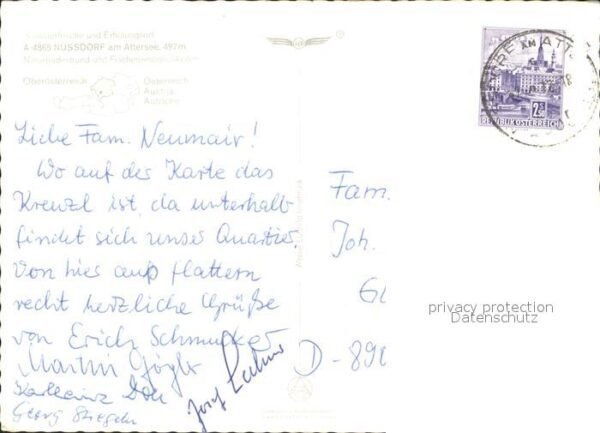 Sommerfrische und Erholungsort
A-4865 NUSSDORF am Attersee, 497m
Oberösterreich
Österreich
Austria
Autriche
Liebe Fam. Neumair!
Wo auf der Karte das
Kreuzl ist, da unterhalb
findet sich unser Quartier.
Von hier aus flattern
recht herzliche Grüße
von Erich Schmutzer
Martin Gögler
Karlheinz
Josef
Georg
Fam.
Joh.
D-890
2.50
REPUBLIK ÖSTERREICH
AM ATTE
privacy protection
Datenschutz